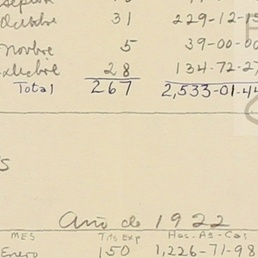 Octubre 31 229-12-1
Novbre 5 39-00-0
Dicbre 28 134-72-2
Total 267 2,533-01-4
Año de 1922
MES Tits Exp Has.-As-Cas
Enero 150 1,226-71-98